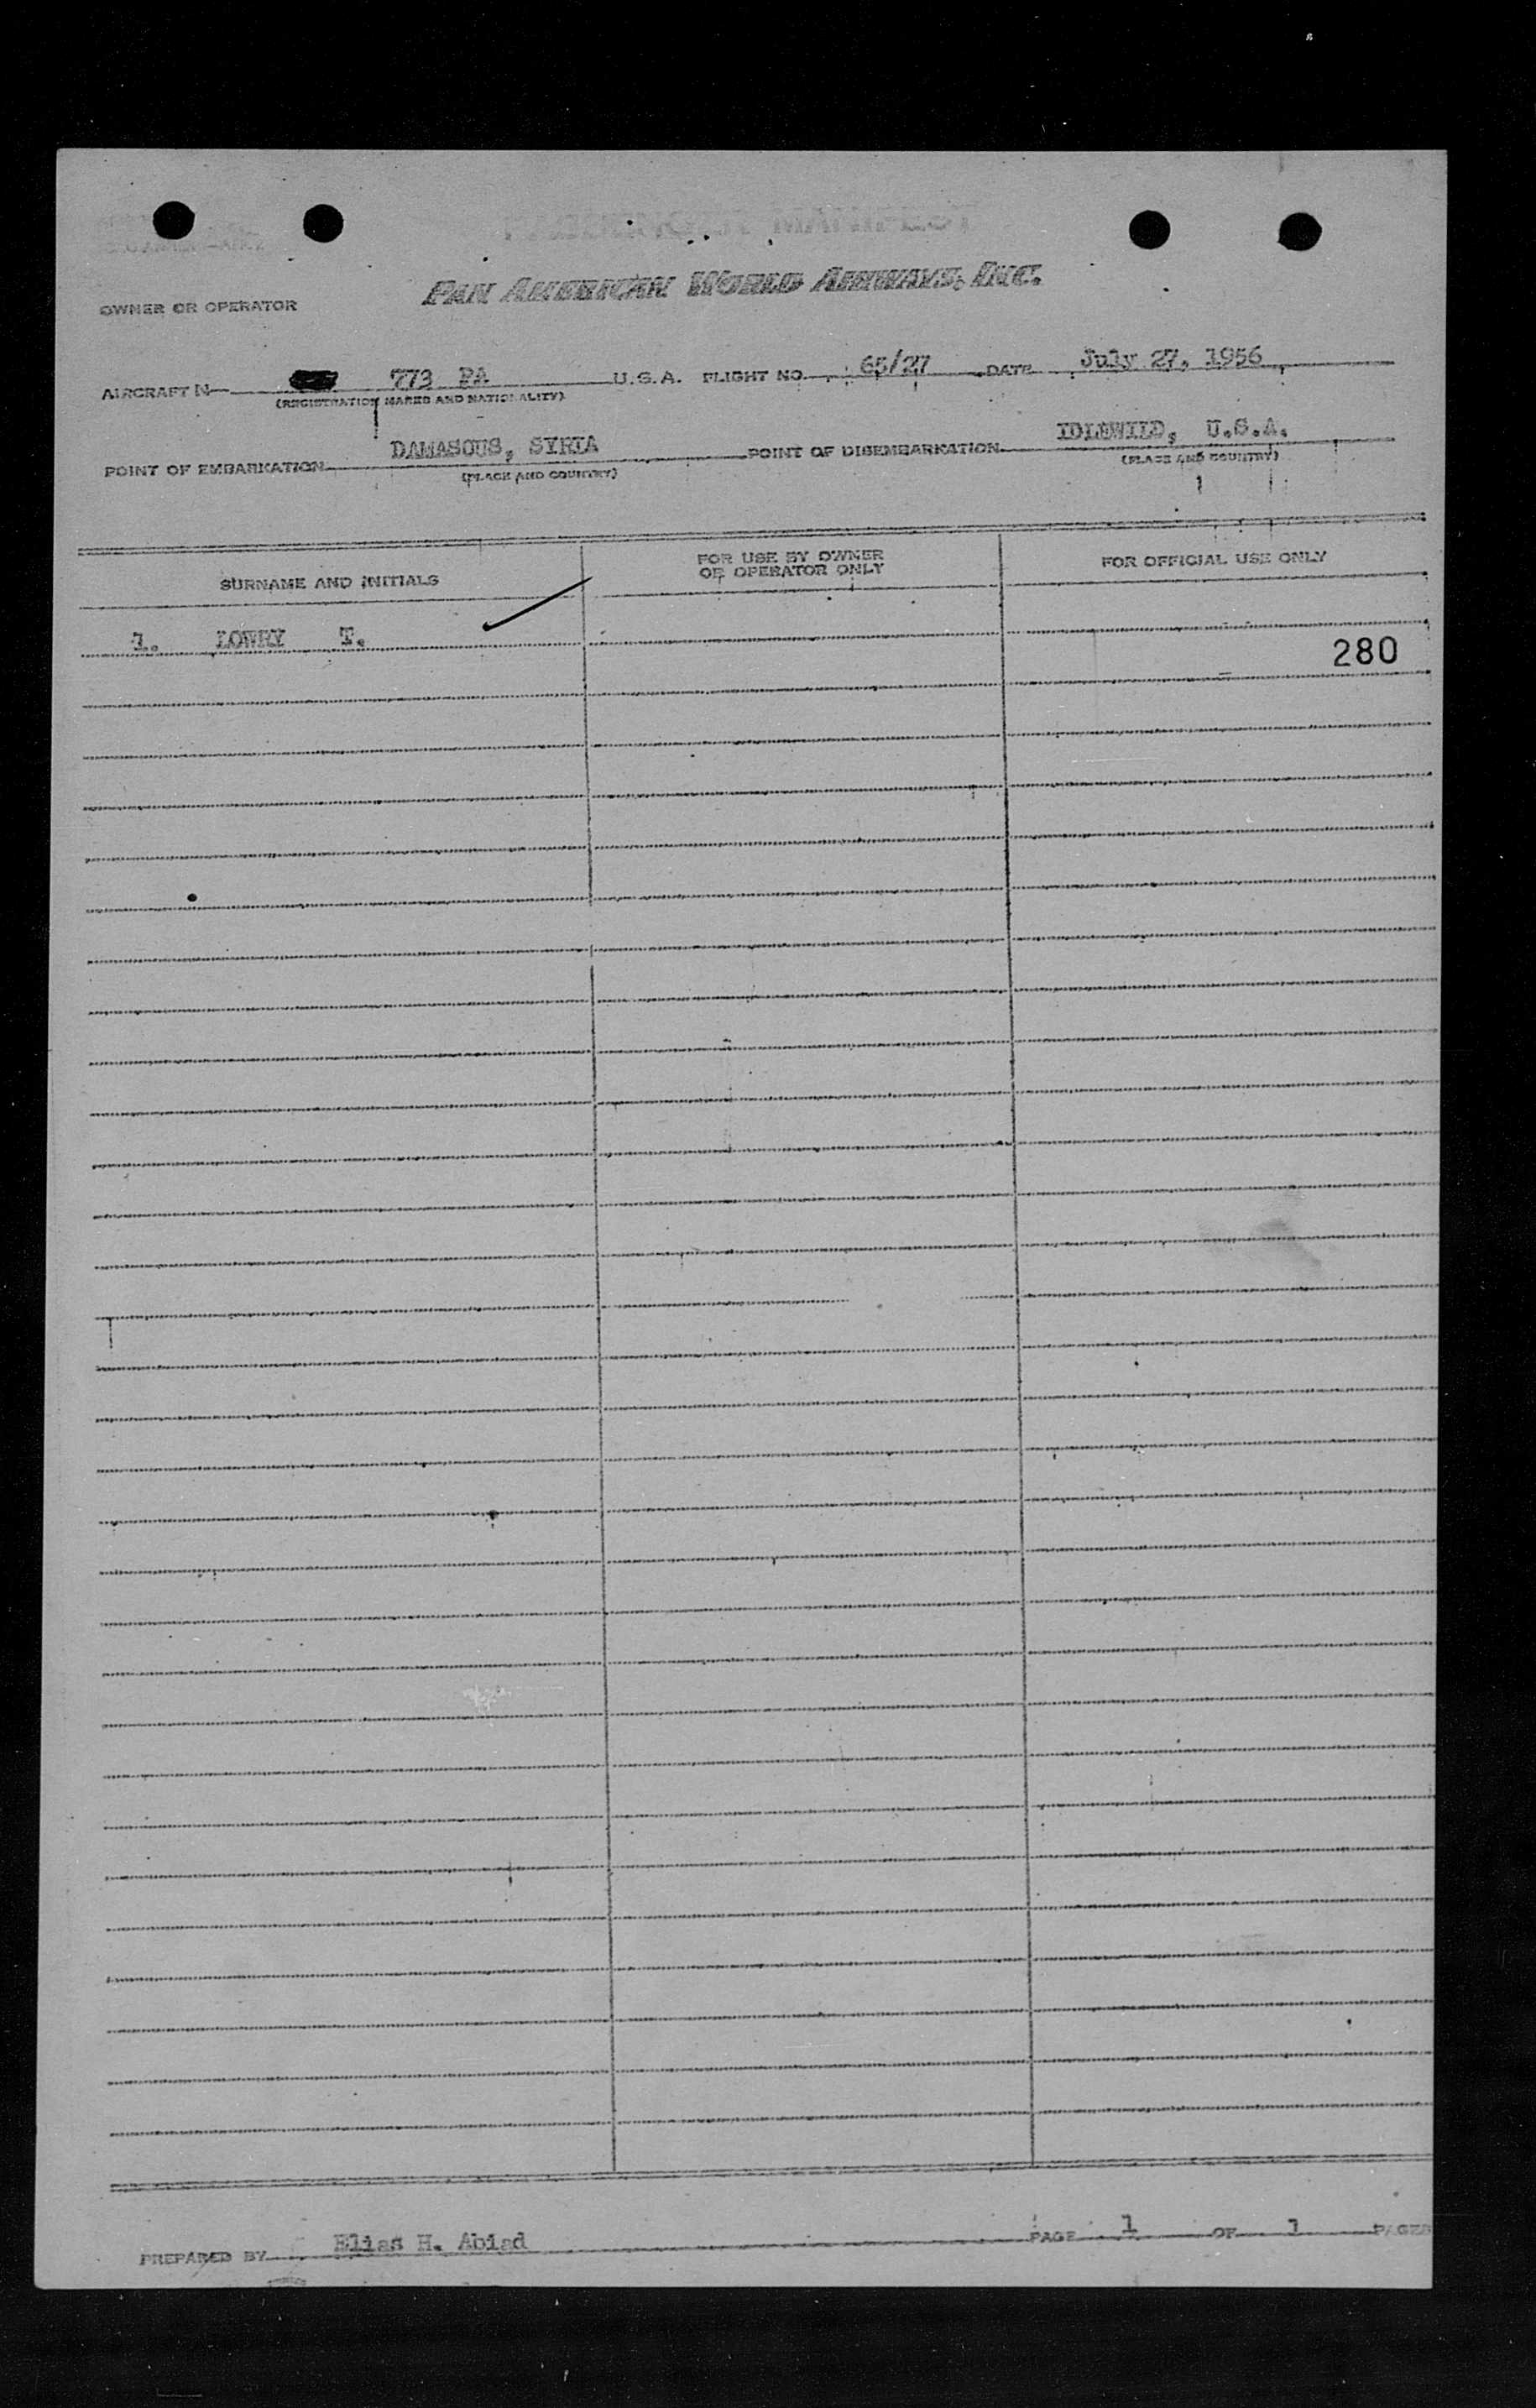 PAN AMERICAN WORLD AIRWAYS, INC.
OWNER OR OPERATOR
AIRCRAFT N 773 PA U.S.A. FLIGHT NO. 65/27 DATE July 27, 1956
(REGISTRATION MARKS AND NATIONALITY)
POINT OF EMBARKATION DAMASCUS, SYRIA POINT OF DISEMBARKATION IDLEWILD, U.S.A.
(PLACE AND COUNTRY) (PLACE AND COUNTRY)
SURNAME AND INITIALS FOR USE BY OWNER OR OPERATOR ONLY FOR OFFICIAL USE ONLY
1. LOWRY T.
280
PREPARED BY Elias H. Abiad PAGE 1 OF 1 PAGES